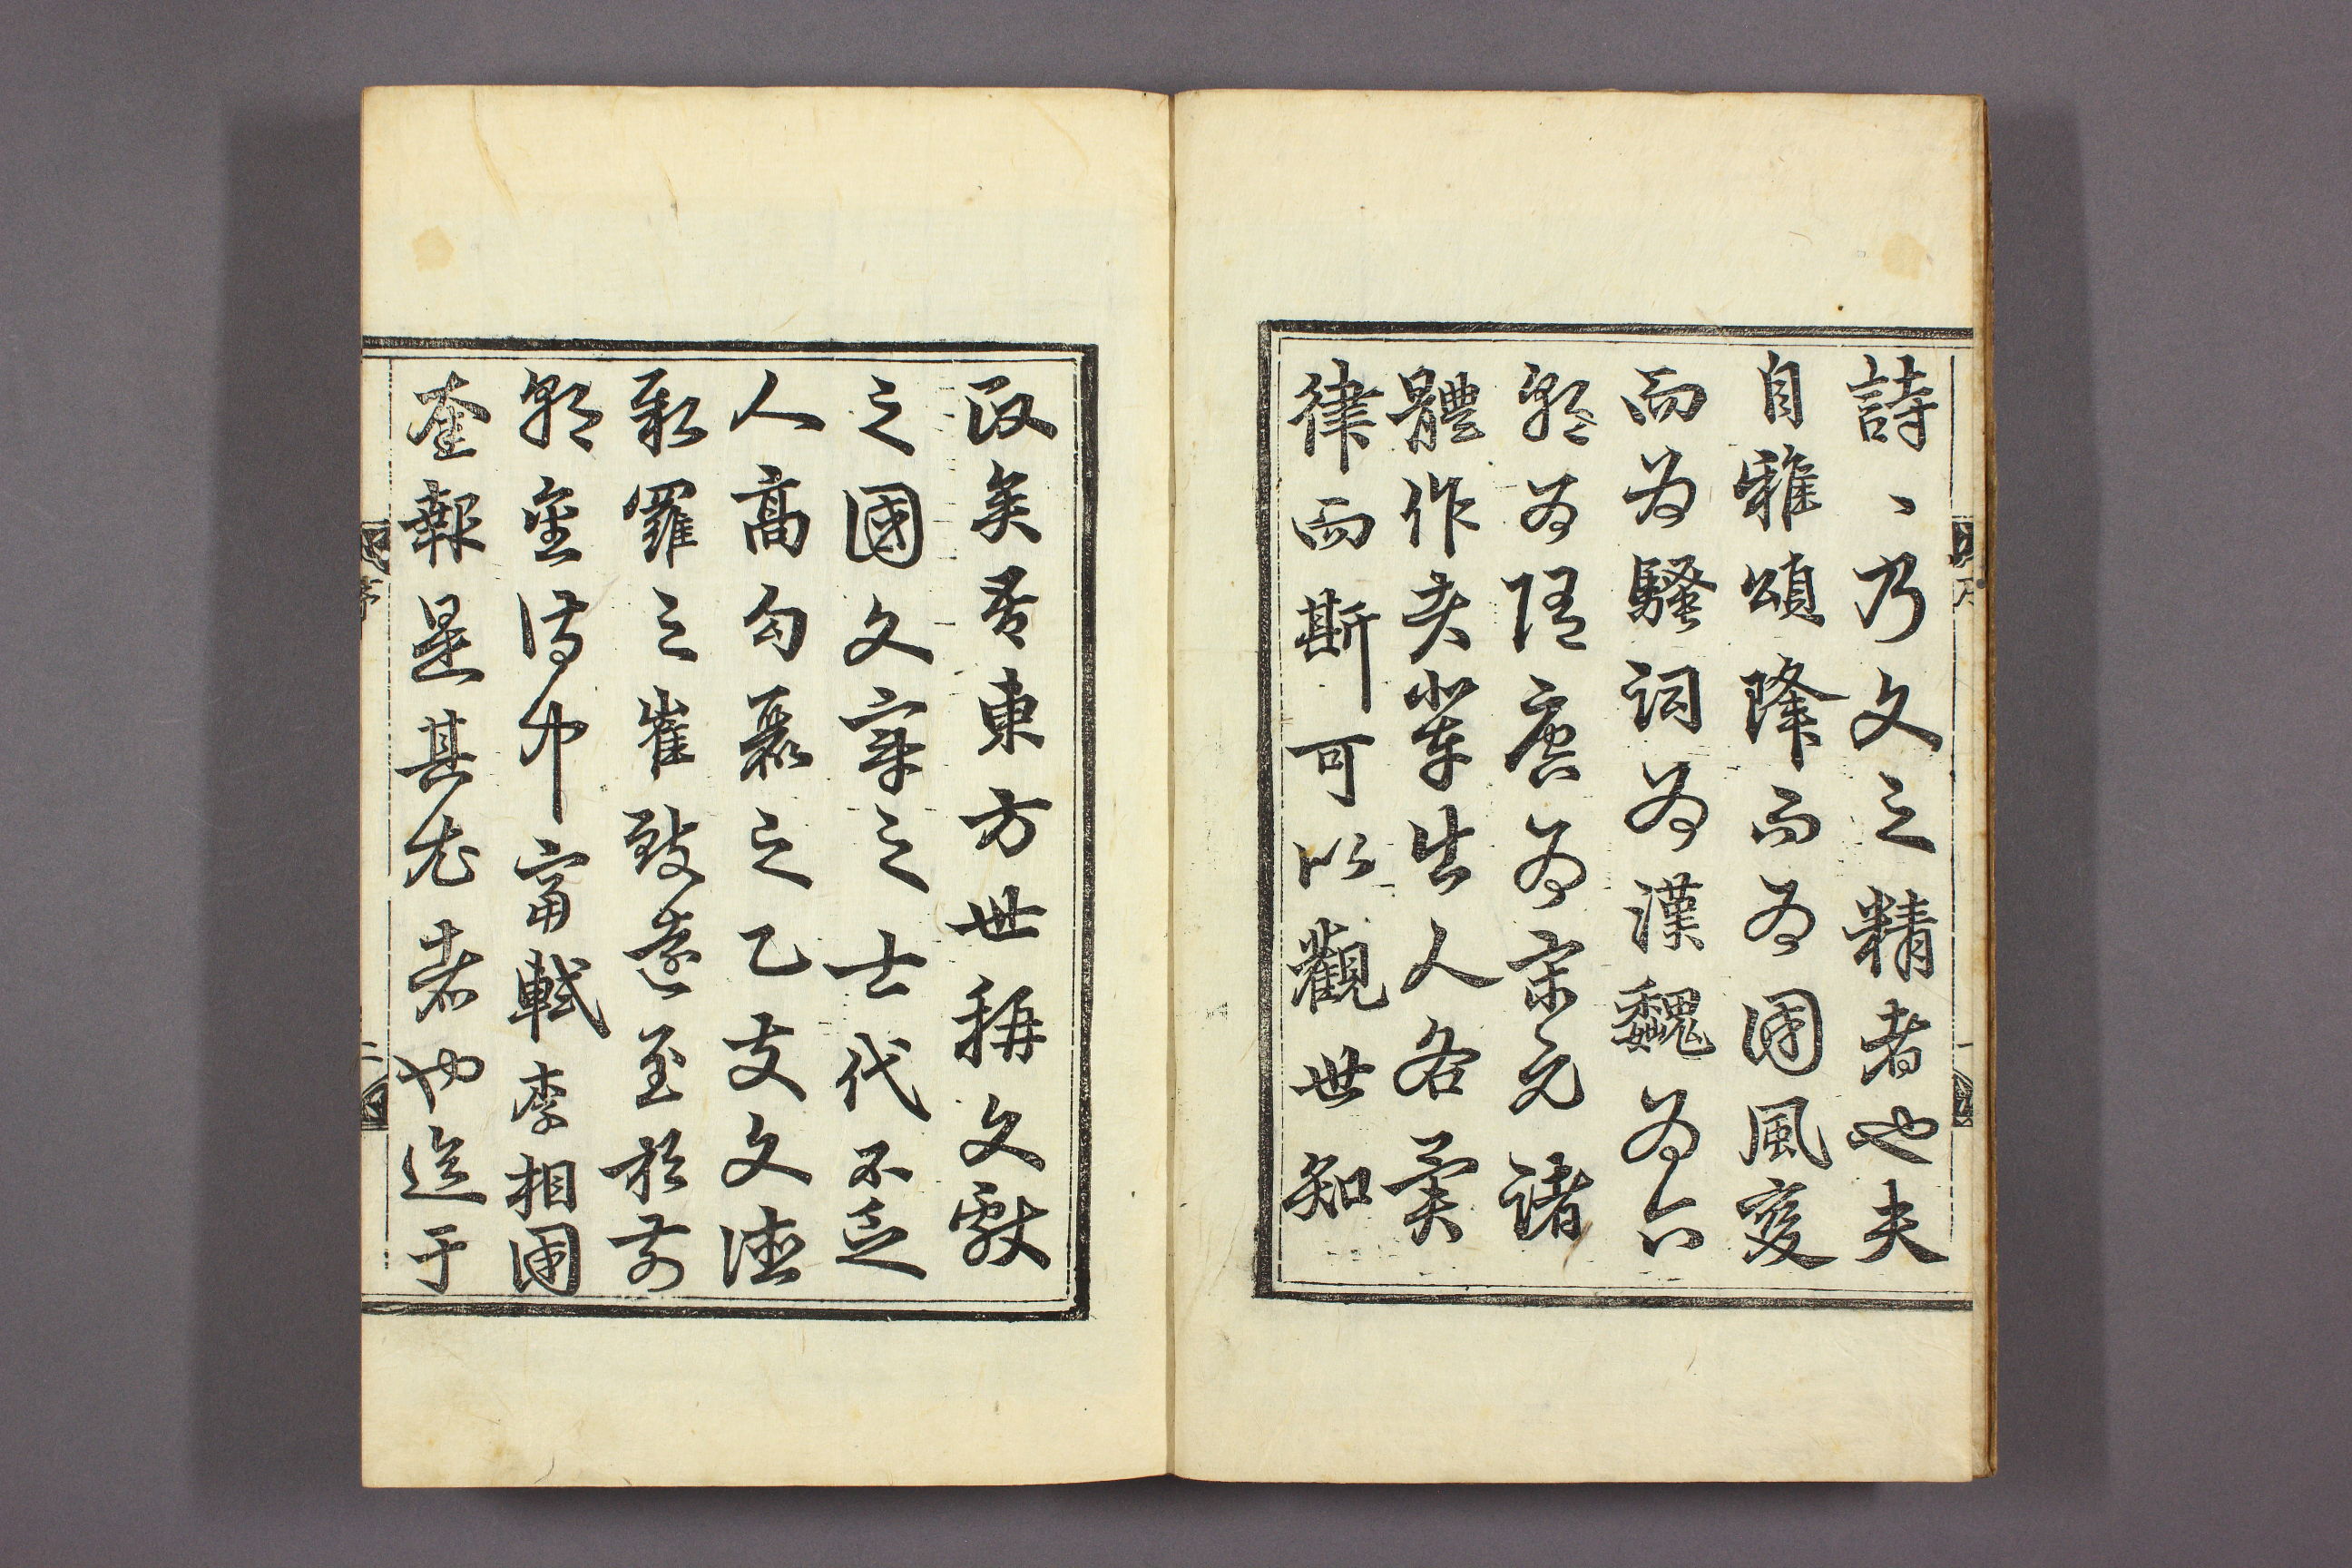 詩、乃文之精者也夫
自雅頌降而為國風變
而為騷詞為漢魏為六
朝為隋唐為宋元諸
體作者輩出人各異
律而斯可以觀世知
政矣吾東方世稱文獻
之國文章之士代不乏
人高勾麗之乙支文德
新羅之崔致遠至於前
朝金侍中富軾李相國
奎報是其尤者也逮于